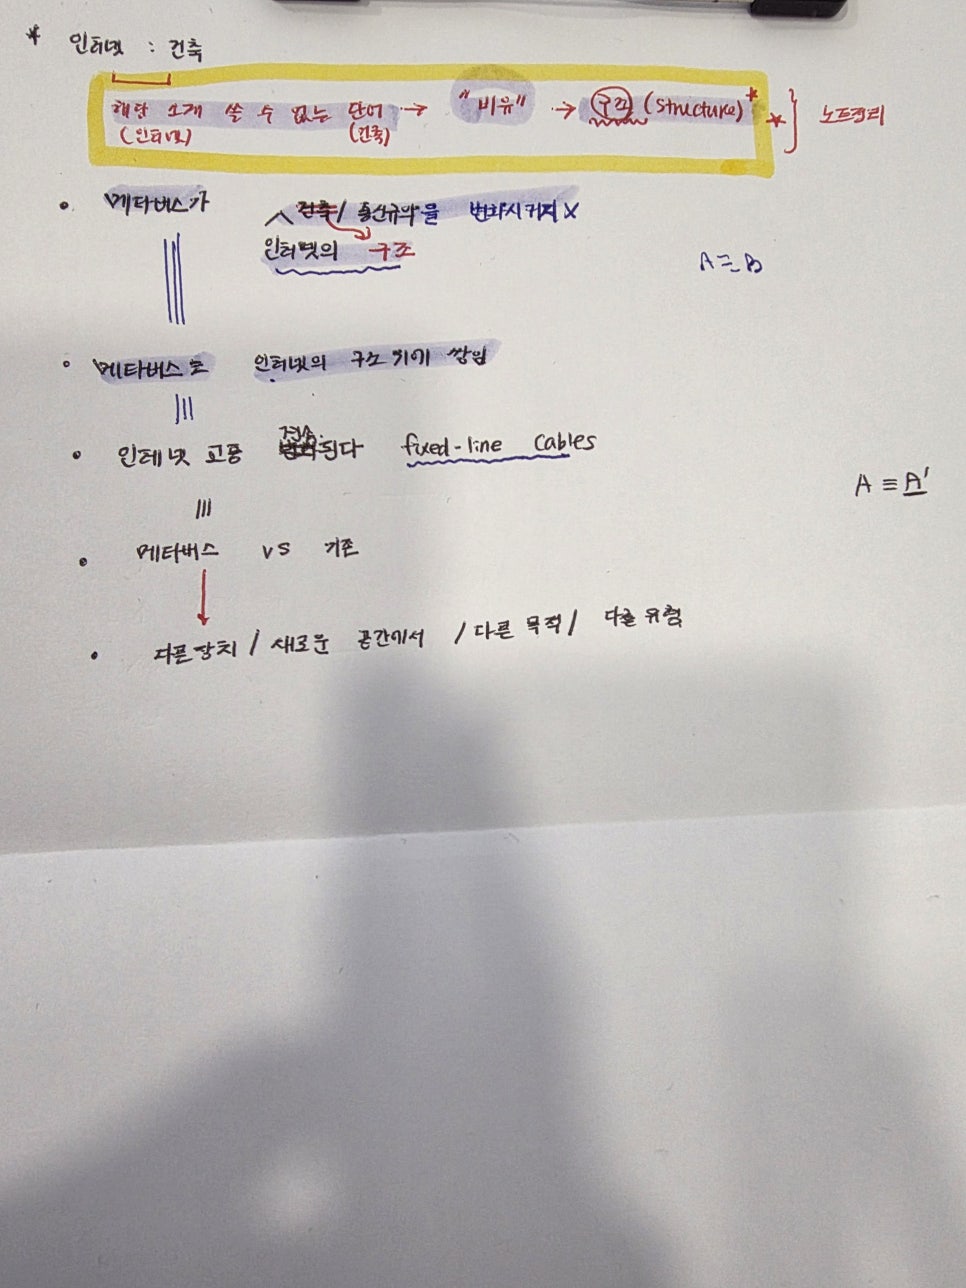 * 인터넷 : 건축
해당 소개 쓸 수 없는 단어 → "비유" → 구조 (structure)* * } 노트정리
(인터넷) (건축)
• 메타버스가 건축/ 통신규약을 변화시키지 X
인터넷의 구조
A≡B
• 메타버스는 인터넷의 구조 위에 쌓임
• 인테넷 교통 전송된다 fixed-line cables
A ≡ A'
• 메타버스 vs 기존
• 다른장치 / 새로운 공간에서 / 다른 목적 / 다른 유형